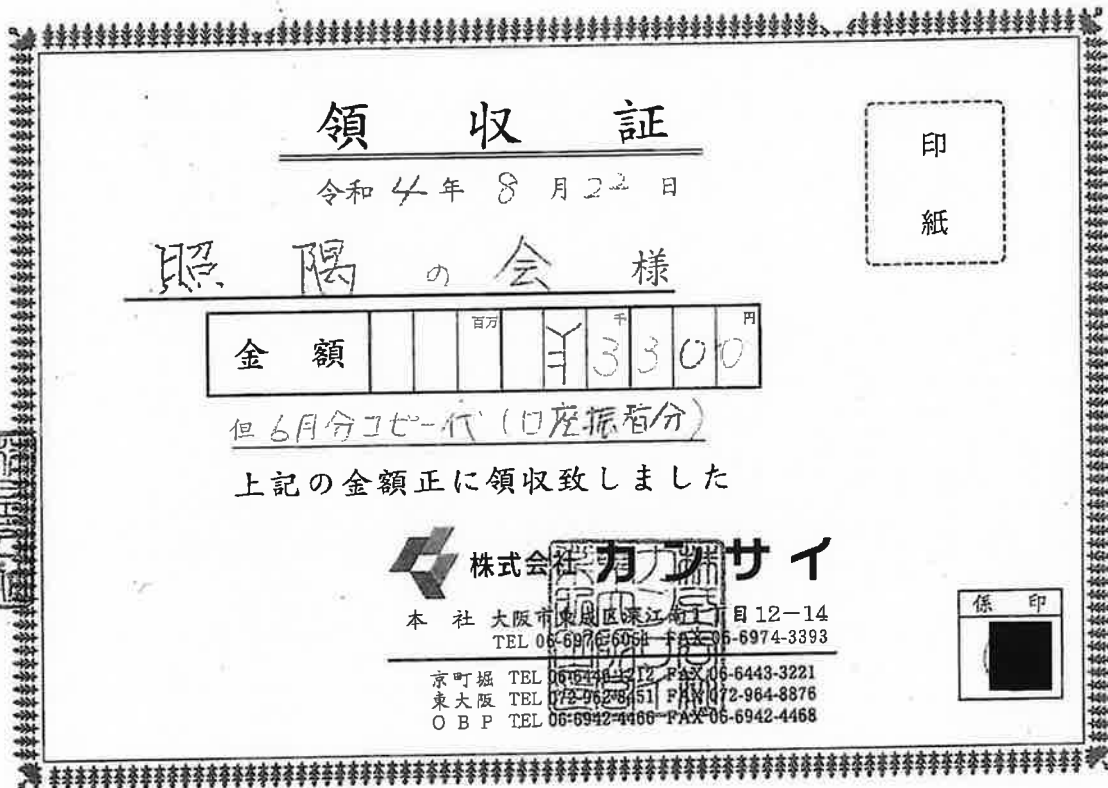 領 収 証
印
紙
令和 4 年 8 月 22 日
照 隅 の 会 様
金 額 百万 千 円
¥3300
但 6月分コピー代 (口座振替分)
上記の金額正に領収致しました
株式会社 カンサイ
本 社 大阪市東成区深江南1丁目12-14
TEL 06-6976-6061 FAX 06-6974-3393
京町堀 TEL FAX 06-6443-3221
東大阪 TEL FAX 072-964-8876
O B P TEL 06-6942-4466 FAX 06-6942-4468
係 印